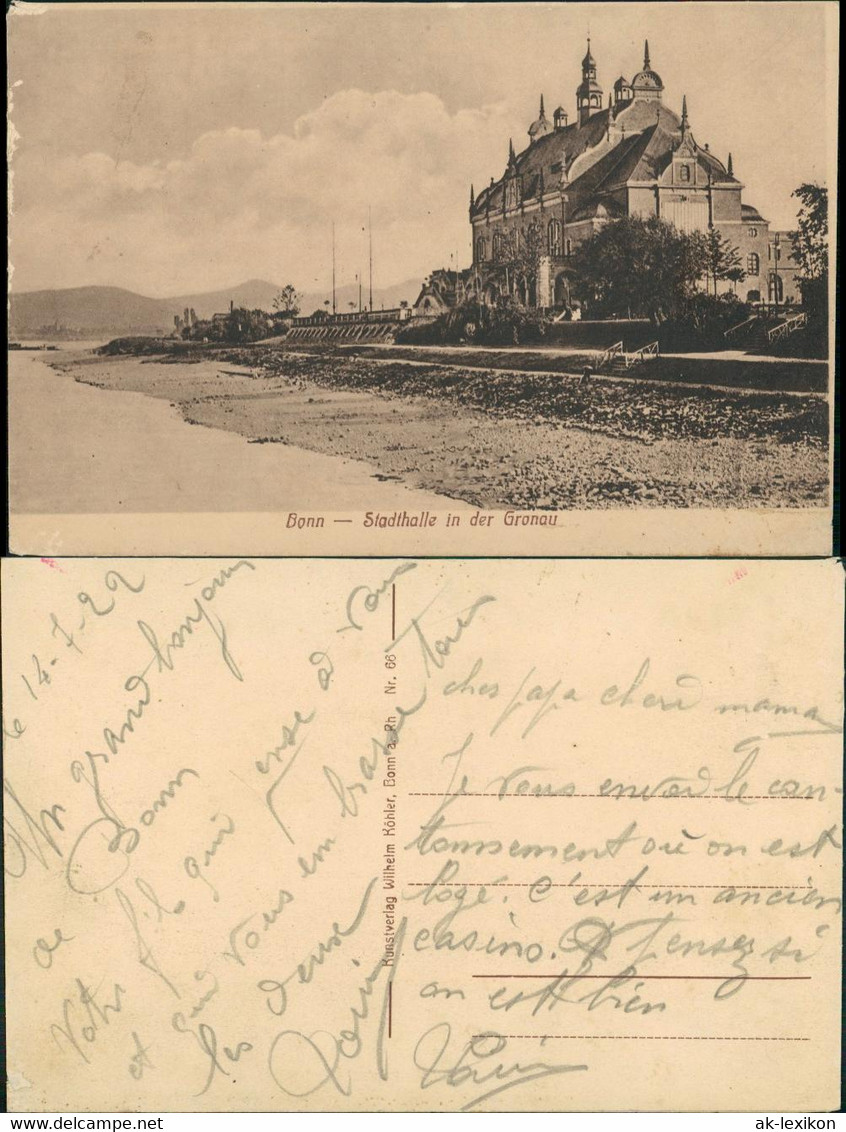 Bonn — Stadthalle in der Gronau
le 14-7-22
Un grand bonjour
de Bonn
Votre fils qui pense a vous
et qui vous embrasse tous
les deux
Kunstverlag Wilhelm Köhler, Bonn a. Rh Nr. 66
cher papa cherd maman
Je vous envoie le can-
tonsement où on est
logé. C'est un ancien
casino. Pensez si
on est bien
ak-lexikon